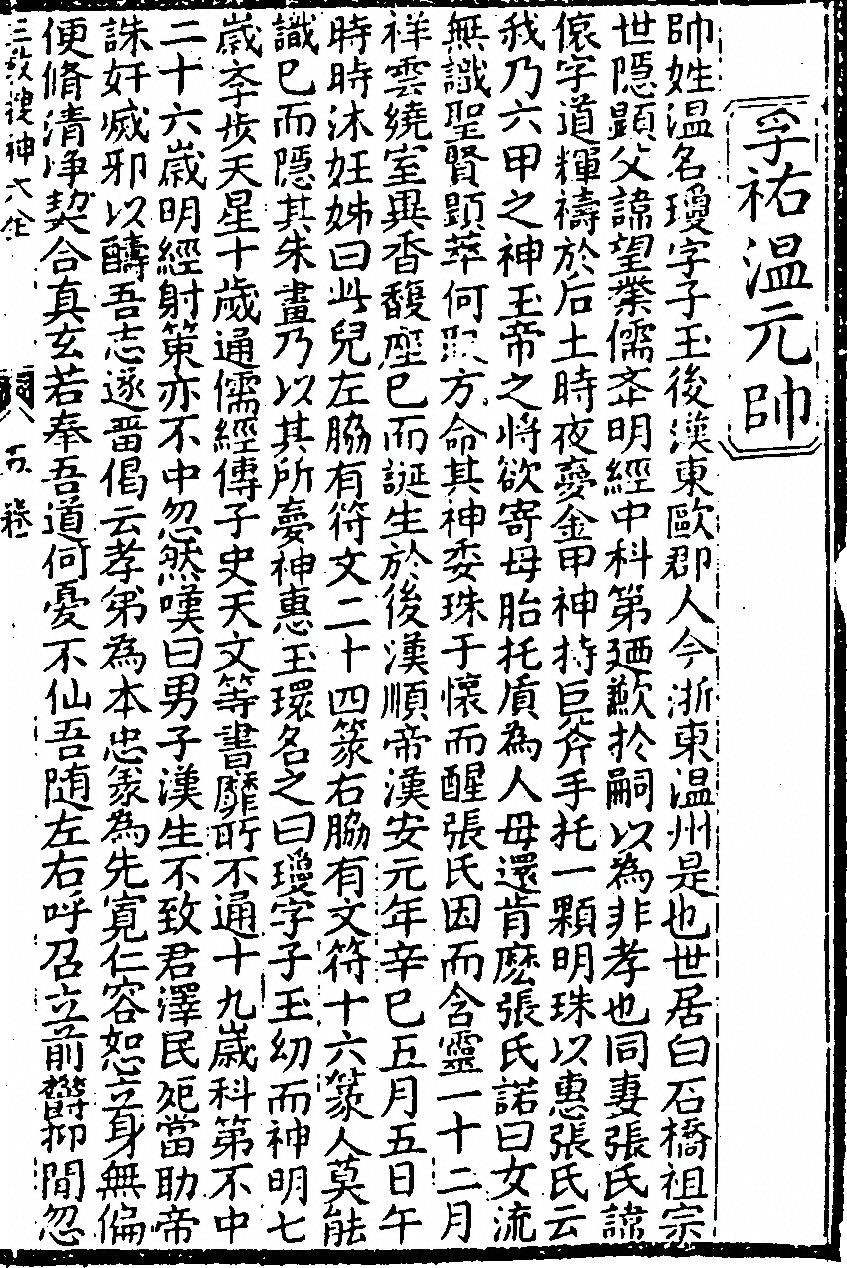 孚祐温元帥
帥姓温名瓊字子玉後漢東歐郡人今浙東温州是也世居白石橋祖宗
世隱顯父諱望業儒斈明經中科第廼歉於嗣以為非孝也同妻張氏諱
字道輝禱於后土時夜夣金甲神持巨斧手托一顆明珠以惠張氏云
我乃六甲之神玉帝之将欲寄母胎托質為人母還肯麽張氏諾曰女流
無識聖賢顕萃何敢方命其神委珠于懷而醒張氏因而含靈一十二月
祥雲繞室異香馥座已而誕生於後漢順帝漢安元年辛巳五月五日午
時時沐妊姊曰此兒左脇有符文二十四篆右脇有文符十六篆人莫能
識已而隱其朱畫乃以其所夣神惠玉環名之曰瓊字子玉幼而神明七
歲斈步天星十歲通儒經傳子史天文等書靡所不通十九歲科第不中
二十六歲明經射策亦不中忽然嘆曰男子漢生不致君澤民死當助帝
誅奸滅邪以酬吾志遂畱偈云孝弟為本忠義為先寬仁容恕立身無偏
便脩清净契合真玄若奉吾道何憂不仙吾随左右呼召立前欝抑間忽
三教搜神大全
五卷